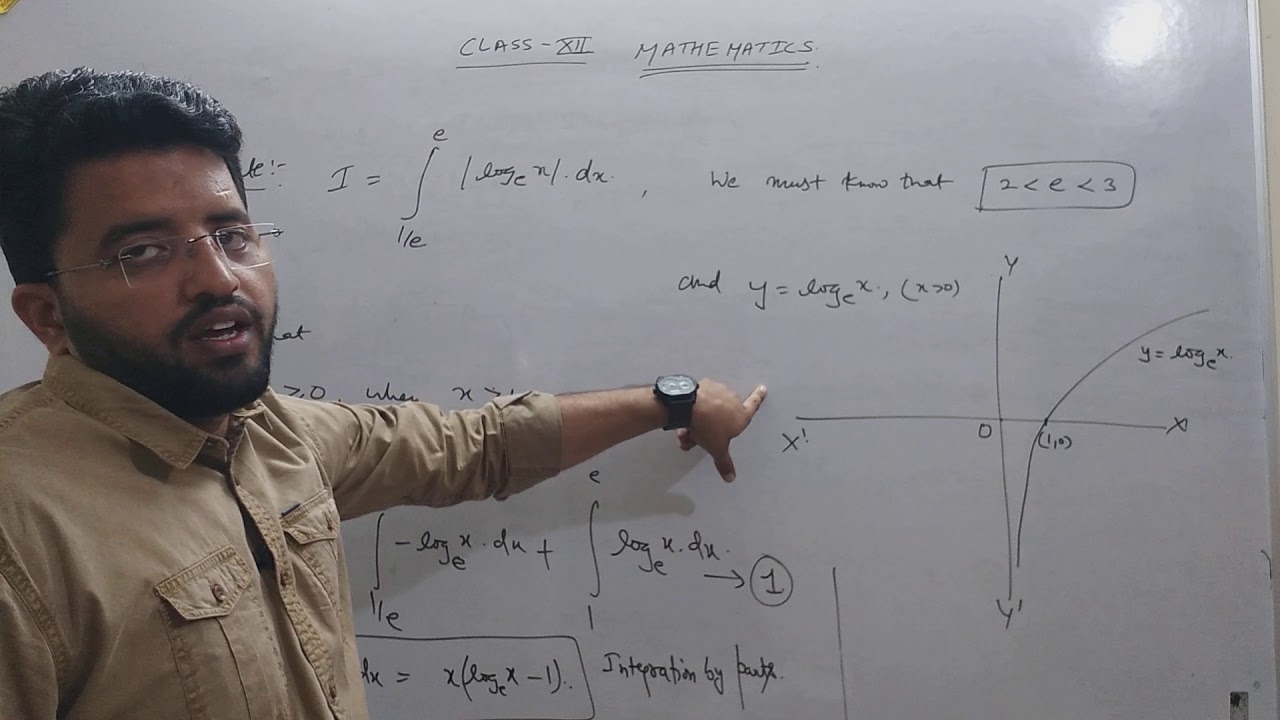 CLASS-XII MATHEMATICS.
I = ∫_{1/e}^{e} |log_e x|. dx. , We must know that 2 < e < 3
and y = log_e x., (x>0)
Y
y = log_e x.
>0, when x
X' O (1,0) X
∫_{1/e} -log_e x. dx + ∫_{1}^{e} log_e x. dx. → 1
Y'
dx = x(log_e x - 1). Integration by parts.